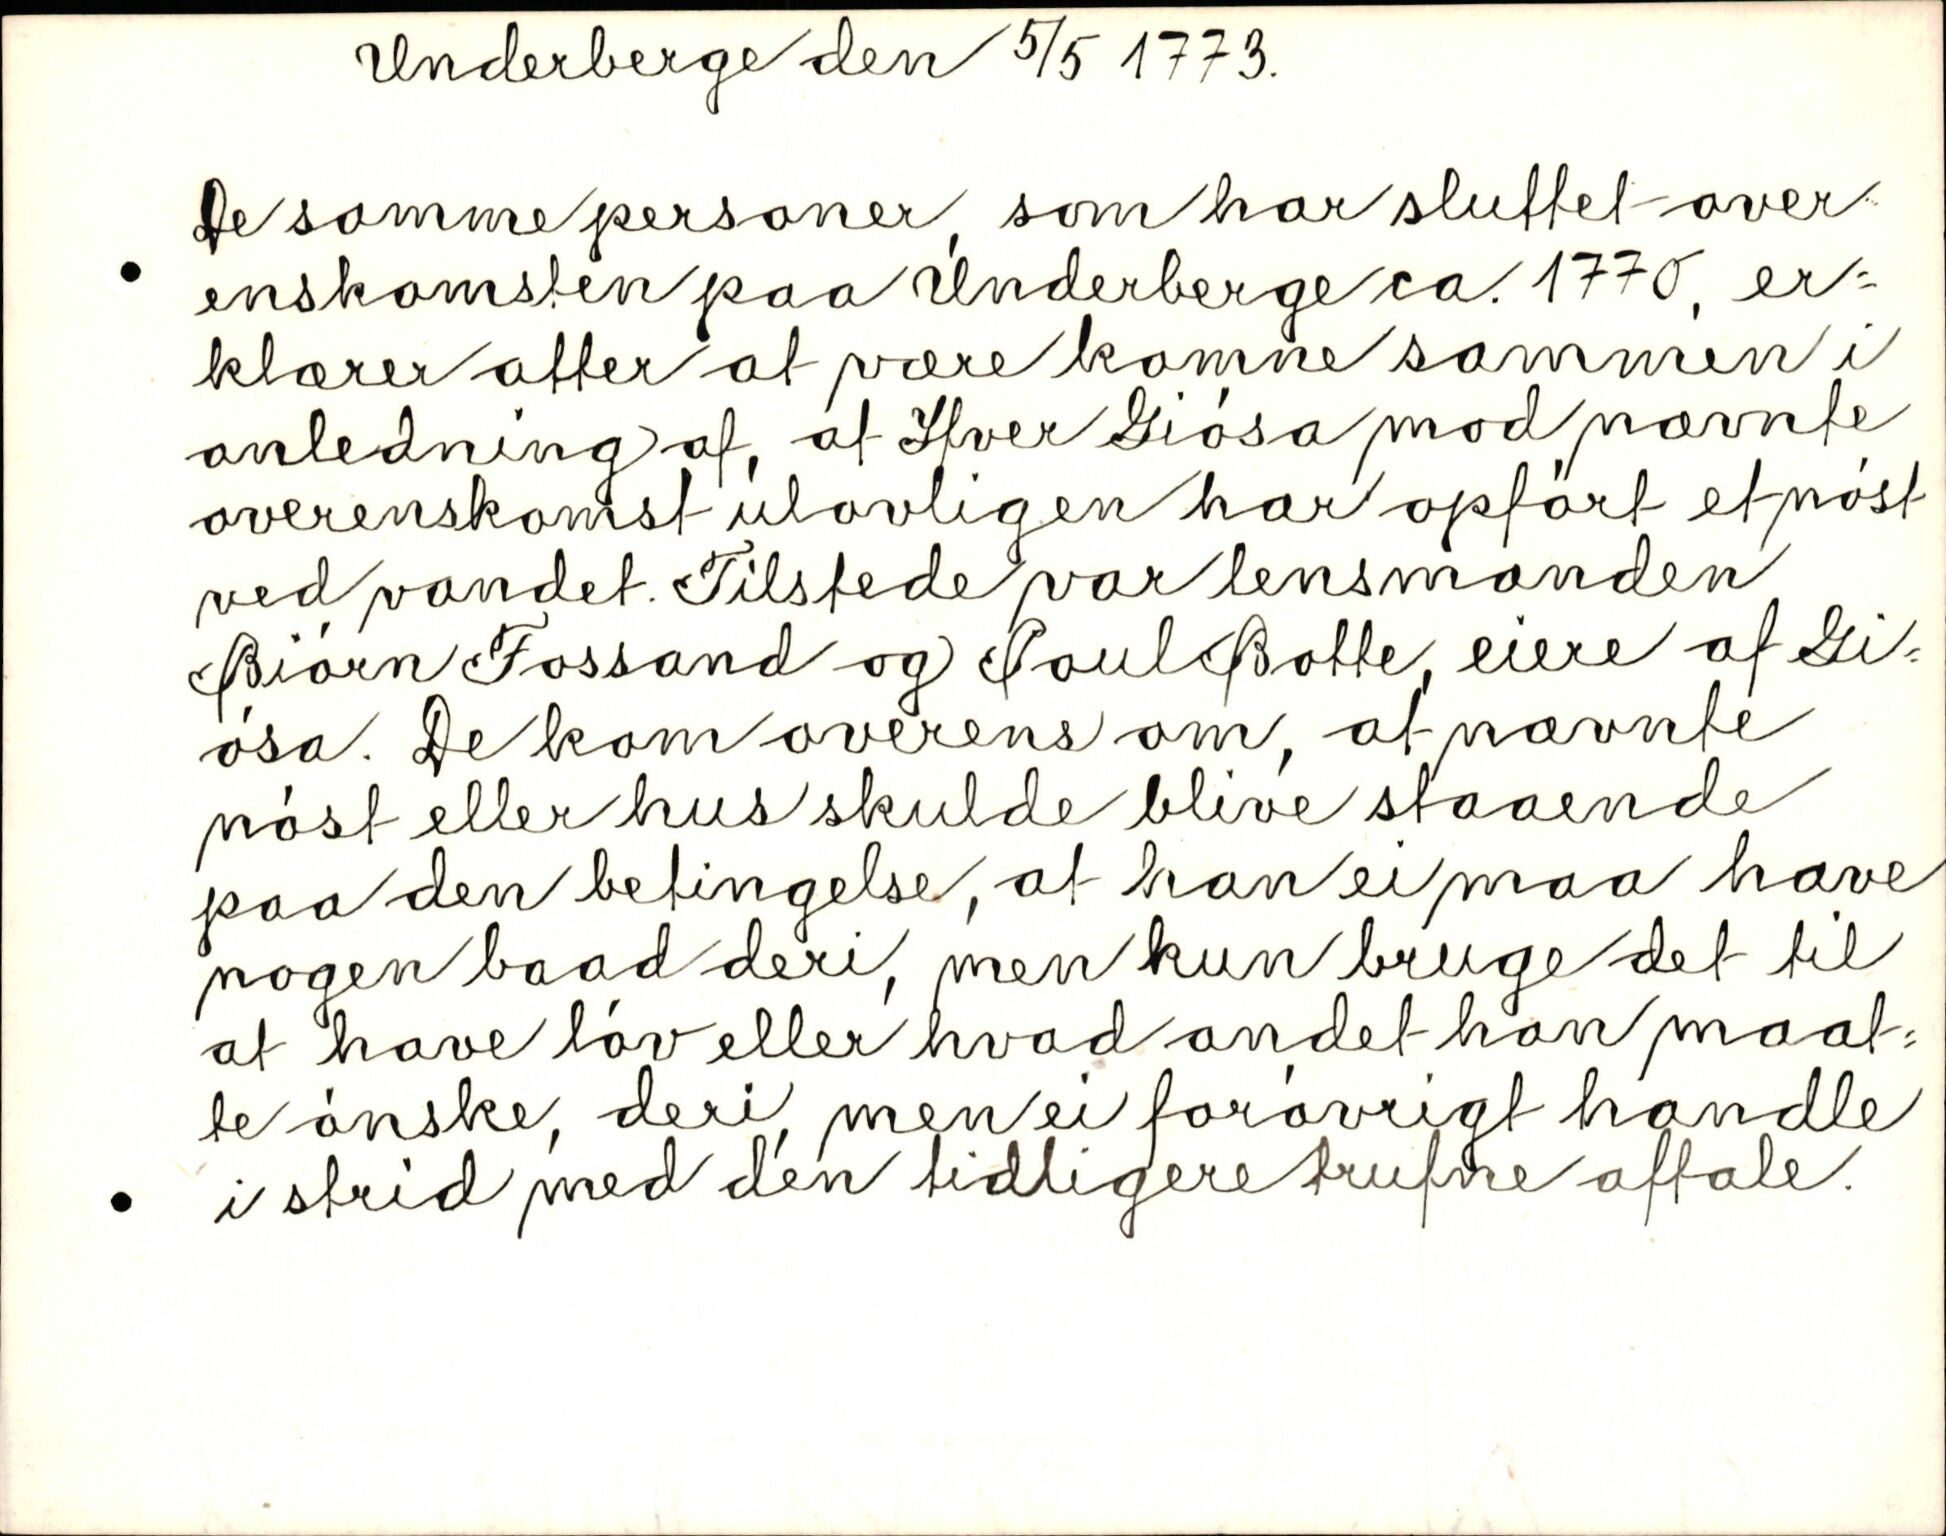 Underberge den 5/5 1773.
De samme personer, som har sluttet over-
enskomsten paa Underberge ca. 1770, er=
klærer atter at være komne sammen i
anledning af, at Ifver Giósa mod nævnte
overenskomst ulovligen har opfórt et nóst
ved vandet. Tilstede var lensmanden
Biórn Fossand og Poul Botte, eiere af Gi=
ósa. De kom overens om, at nævnte
nóst eller hus skulde blive staaende
paa den betingelse, at han ei maa have
nogen baad deri, men kun bruge det til
at have lóv eller hvad andet han maat=
te ónske, deri, men ei foróvrigt handle
i strid med den tidligere trufne aftale.